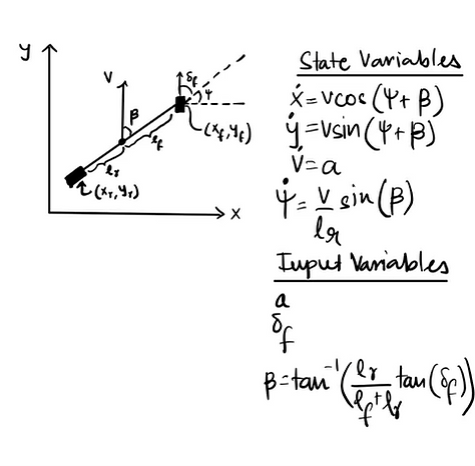 y
V
β
δf
ψ
(xf,yf)
lf
lr
(xr,yr)
x
State Variables
ẋ=vcos(ψ+β)
ẏ=vsin(ψ+β)
v̇=a
ψ̇=v/lr sin(β)
Input Variables
a
δf
β=tan⁻¹(lr/(lf+lr) tan(δf))